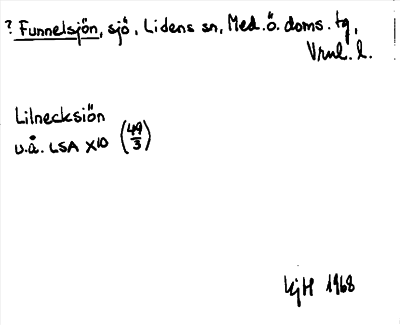 ? Funnelsjön, sjö, Lidens sn, Med. ö. doms. tg,
Vrnl. l.
Lilnecksiön
u.å. LSA X10 (49/3)
KjH 1968